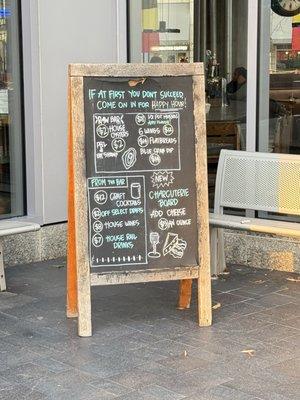 IF AT FIRST YOU DON'T SUCCEED,
COME ON IN FOR HAPPY HOUR!
RAW BAR
$2 HOUSE
OYSTERS
$2
WINGS
FLATBREADS
BLUE CRAB DIP
FROM THE BAR
$12 CRAFT
COCKTAILS
$2 OFF SELECT DRAFTS
$8 HOUSE WINES
$7 HOUSE RAIL
DRINKS
NEW
CHARCUTERIE
BOARD
ADD CHEESE
AN OUNCE